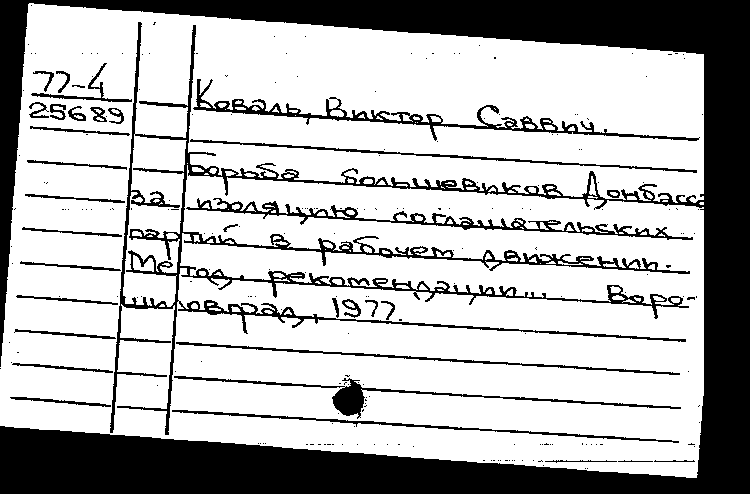 77-4
25689
Коваль, Виктор Саввич.
Борьба большевиков Донбасса
за изоляцию соглашательских
партий в рабочем движении.
Метод. рекомендации... Воро-
шиловград, 1977.